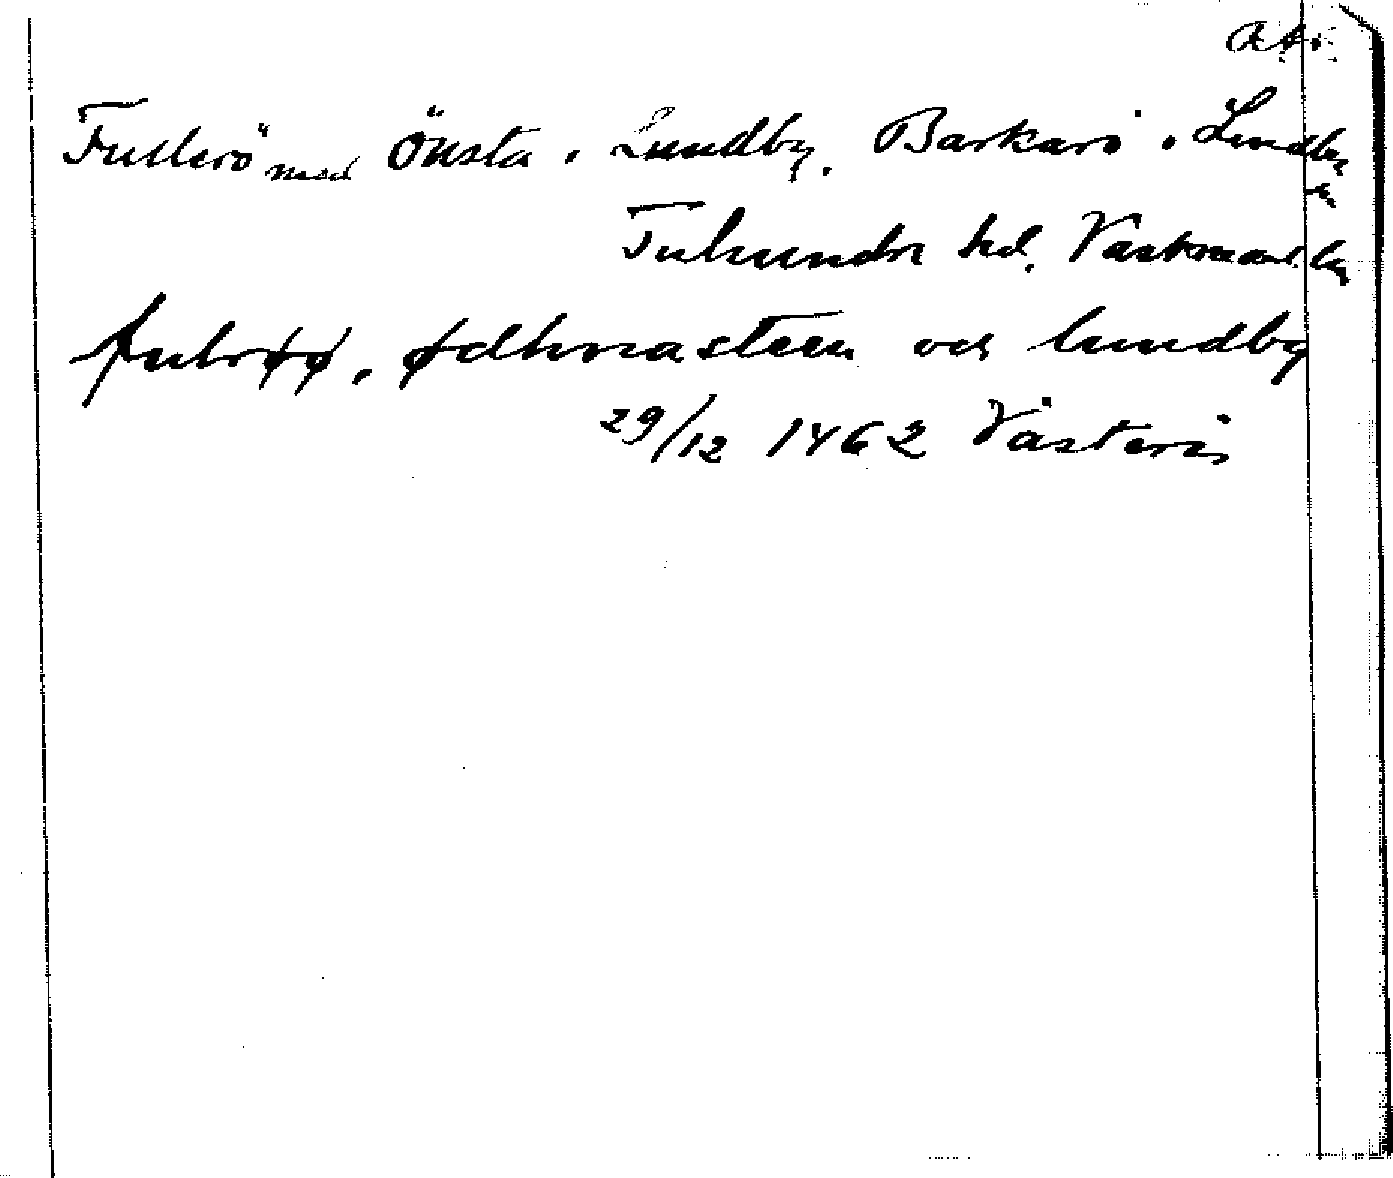 Fullerö med Önsta, Lundby, Barkarö, Lundby
Tuhundra hd, Västmanl. län
fulørøø, ødhinasteen och lundby
29/12 1462 Västerås